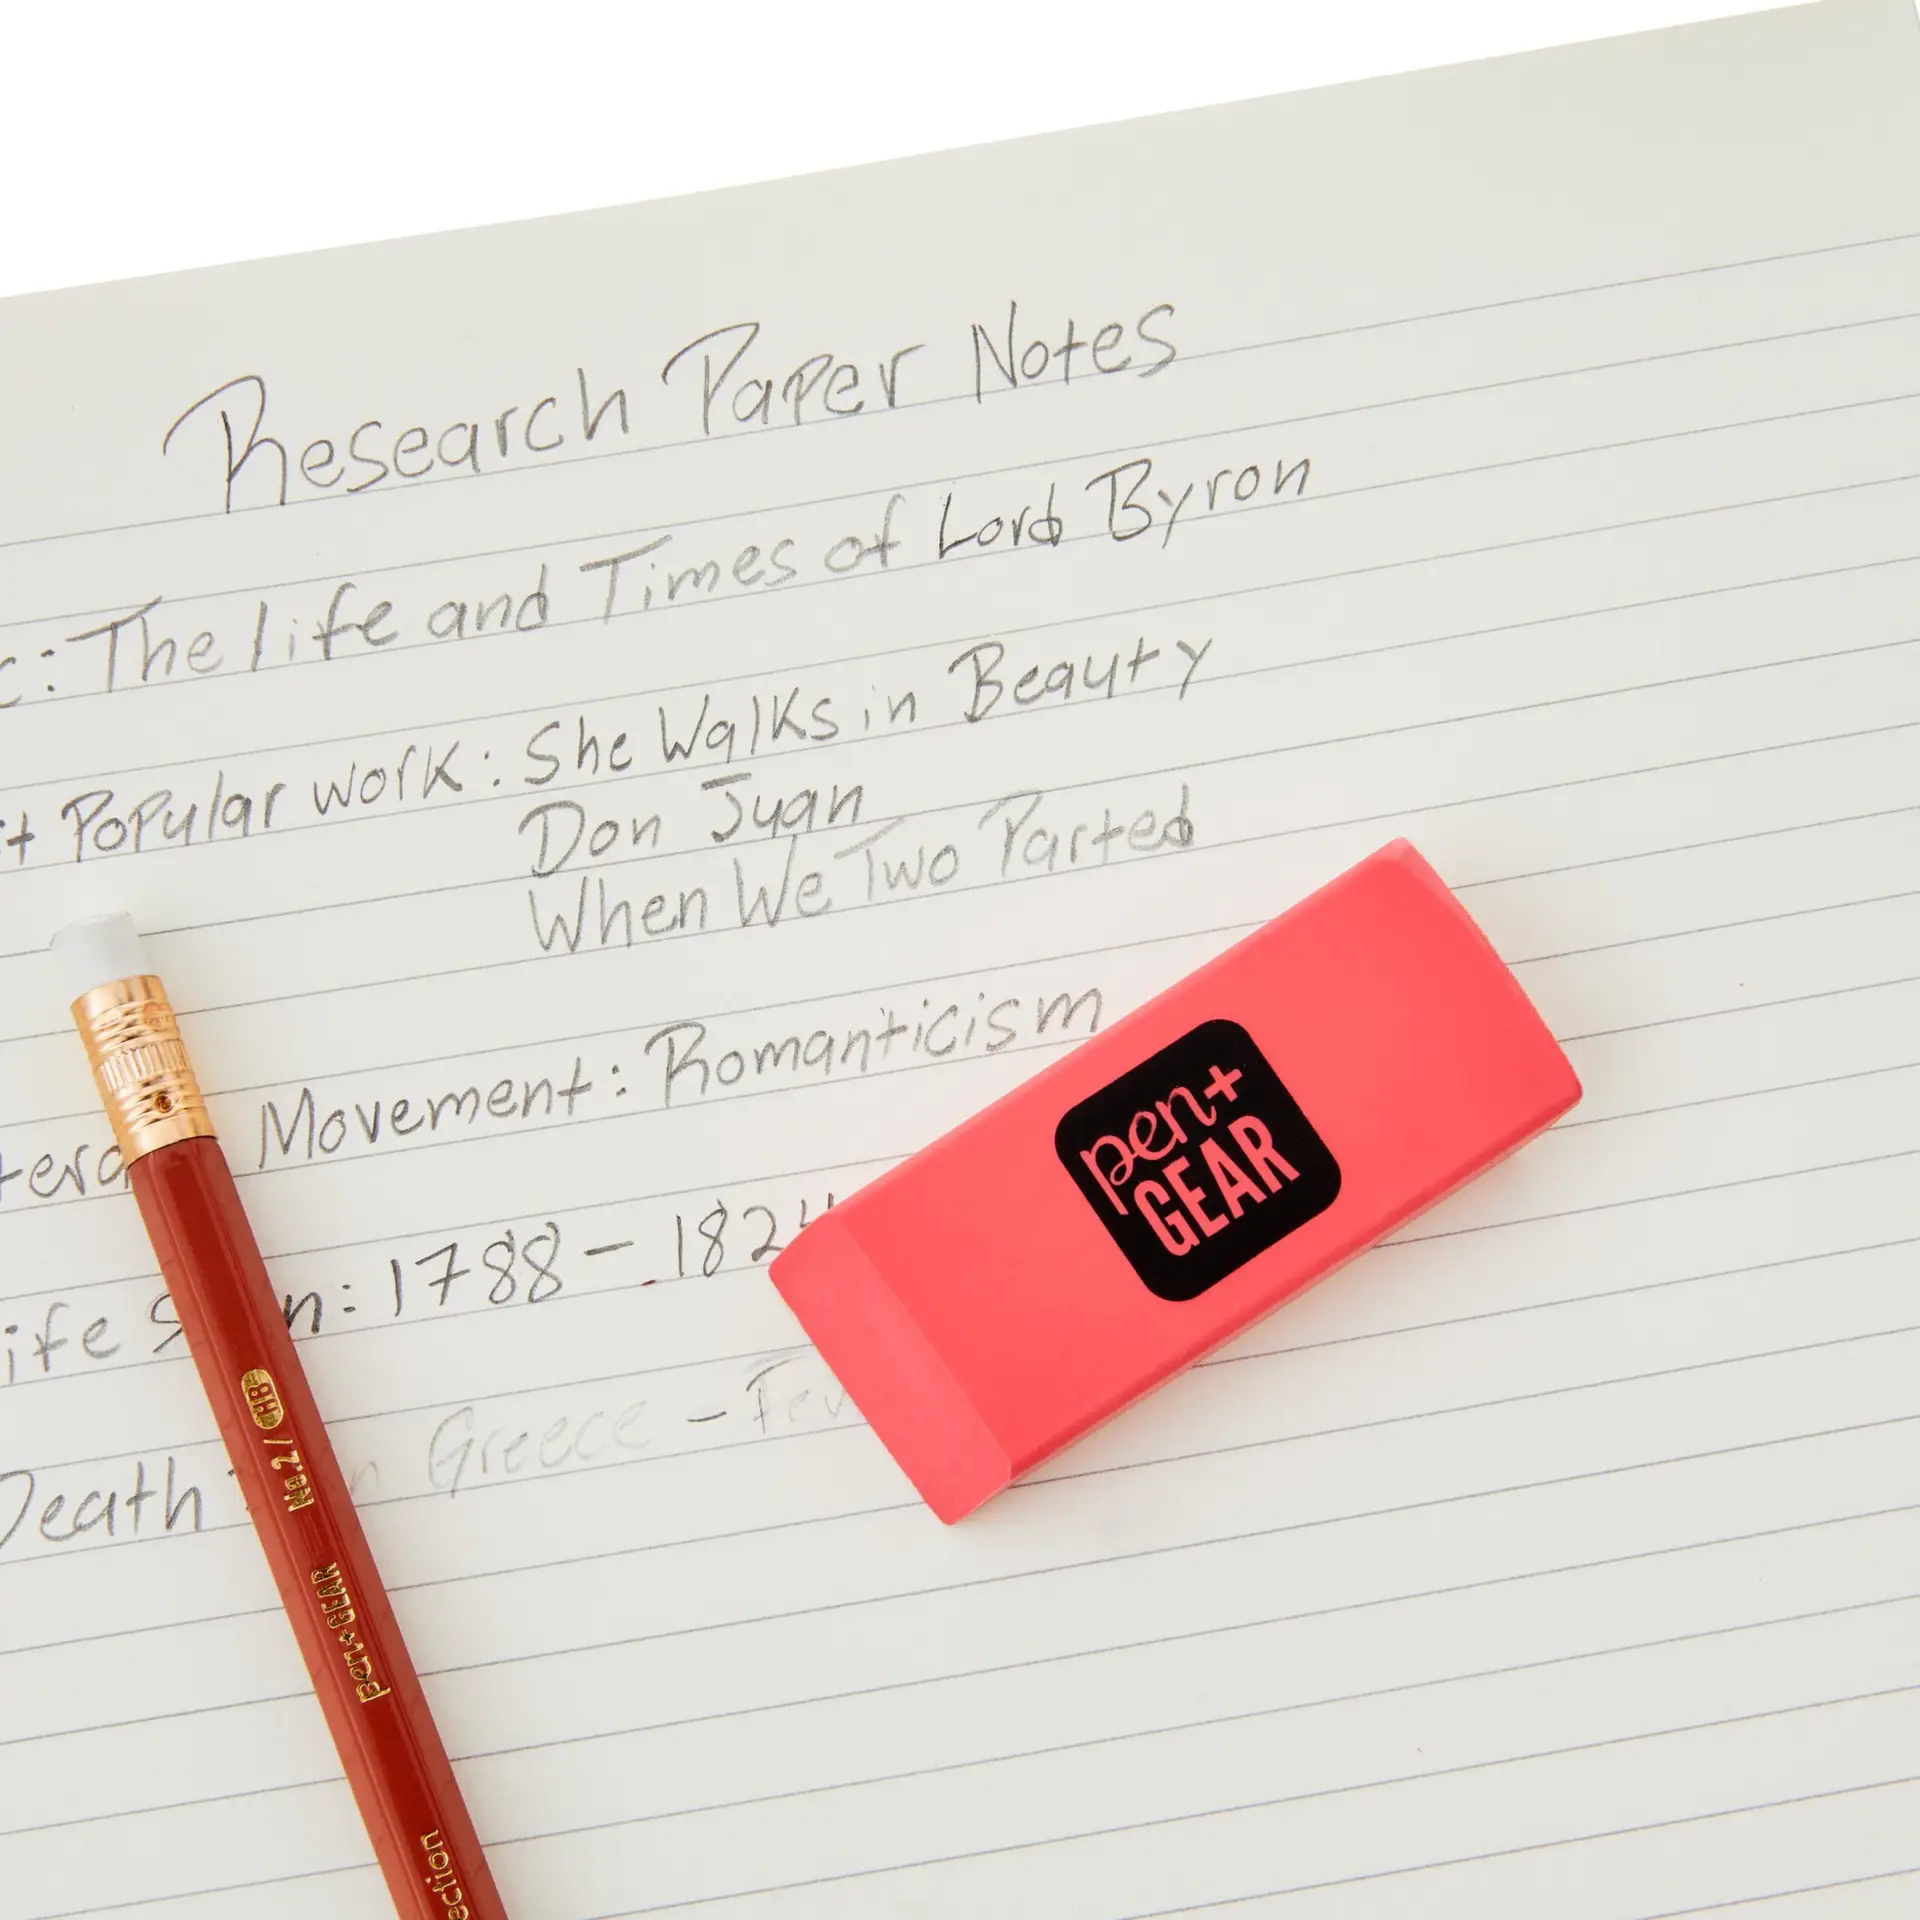 Research Paper Notes
c: The life and Times of Lord Byron
st Popular work: She Walks in Beauty
Don Juan
When We Two Parted
Movement: Romanticism
ife n: 1788 - 1824
Death Greece - Fev
pen+
GEAR
No.2/HB
pen+GEAR
ection